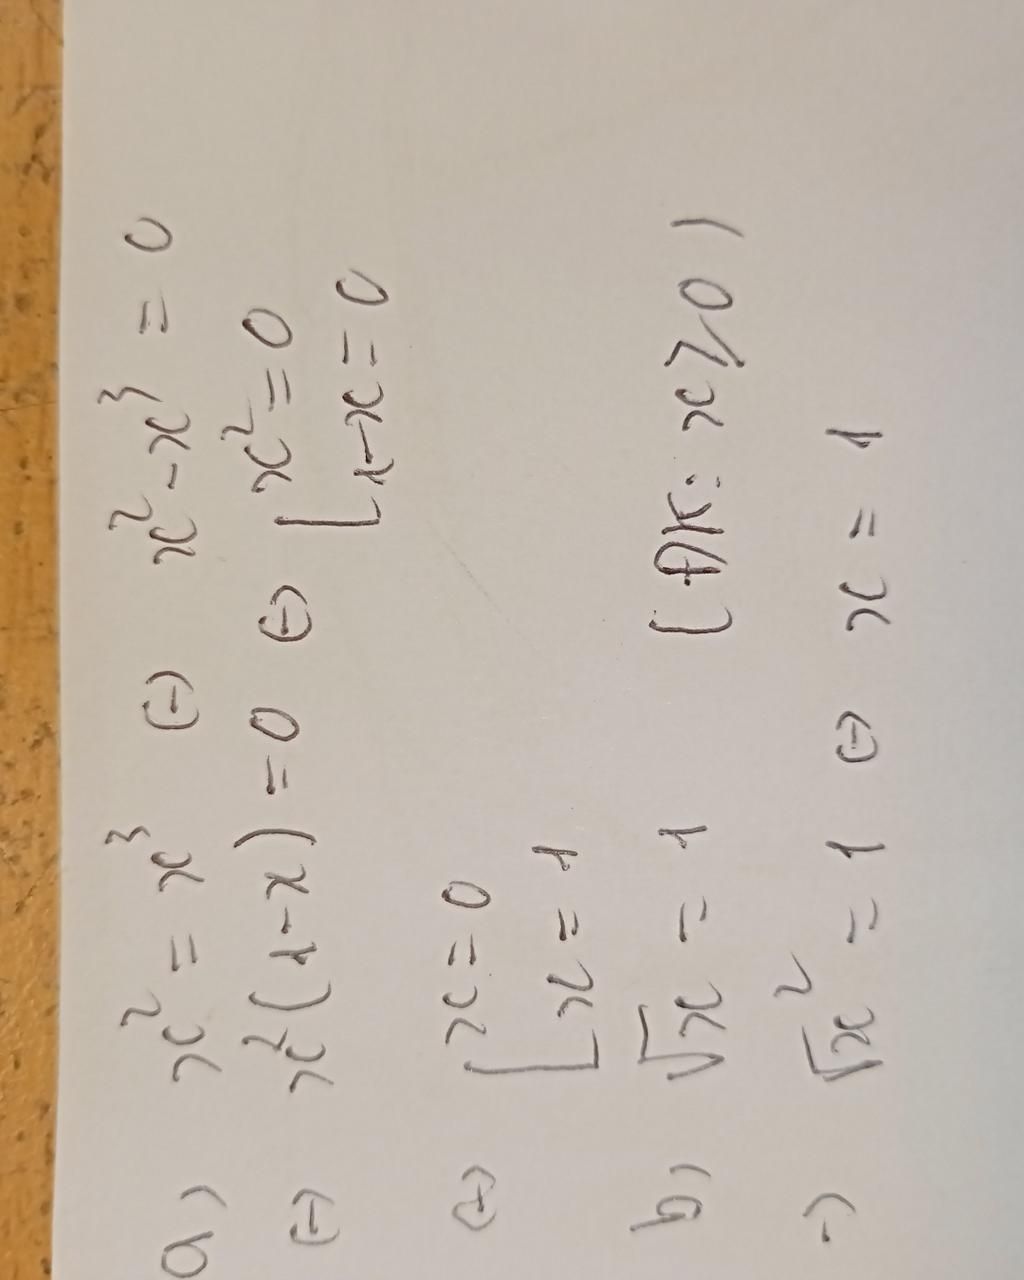 a) x² = x³ (-) x² - x³ = 0
(-) x²(1-x) = 0 (-) [ x² = 0
[ 1-x = 0
(-) [ x = 0
[ x = 1
b) √x = 1 (ĐK: x ≥ 0)
-) √x² = 1 (-) x = 1